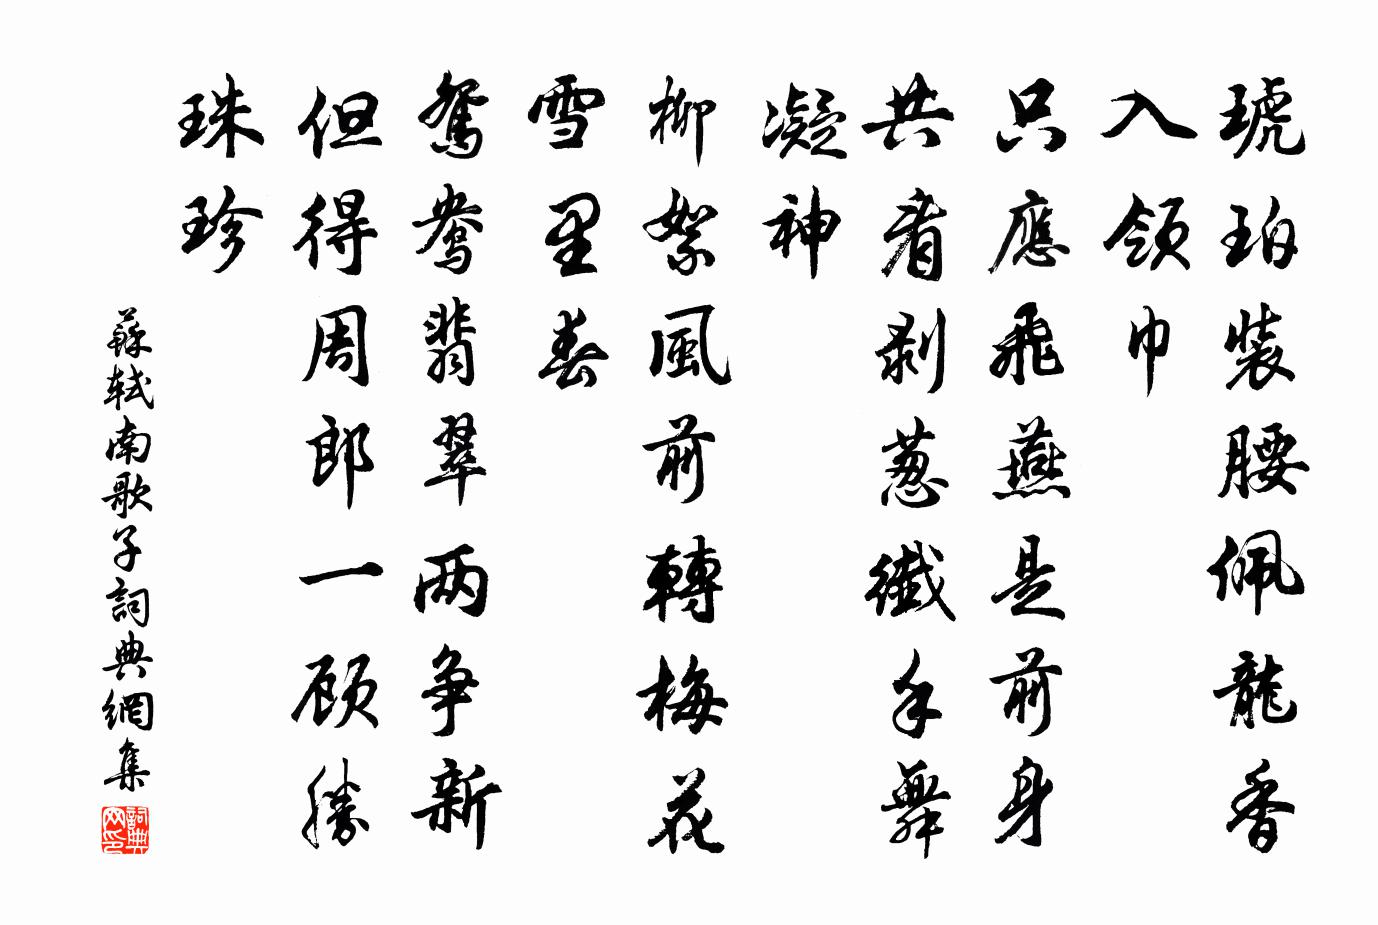 琥珀裝腰佩龍香
入領巾
只應飛燕是前身
共看剥葱纖手舞
凝神
柳絮風前轉梅花
雪里春
鴛鴦翡翠兩争新
但得周郎一顧勝
珠珍
蘇軾南歌子詞典網集
詞典网印